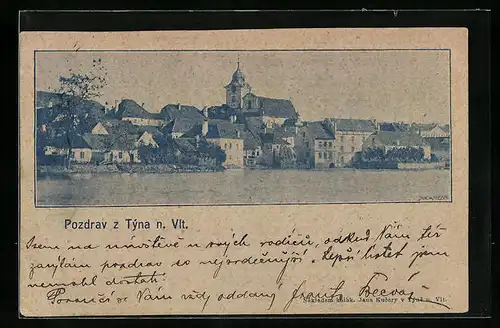 Pozdrav z Týna n. Vlt.
Jsem na návštěvě u svých rodičů, odkud Vám též
zasýlám pozdrav co nejsrdečnější. Lepší lístek jsem
nemohl dostati.
Poroučí se Vám vždy oddaný Frant.
Nákladem knihk. Jana Kučery v Týně n. Vlt.